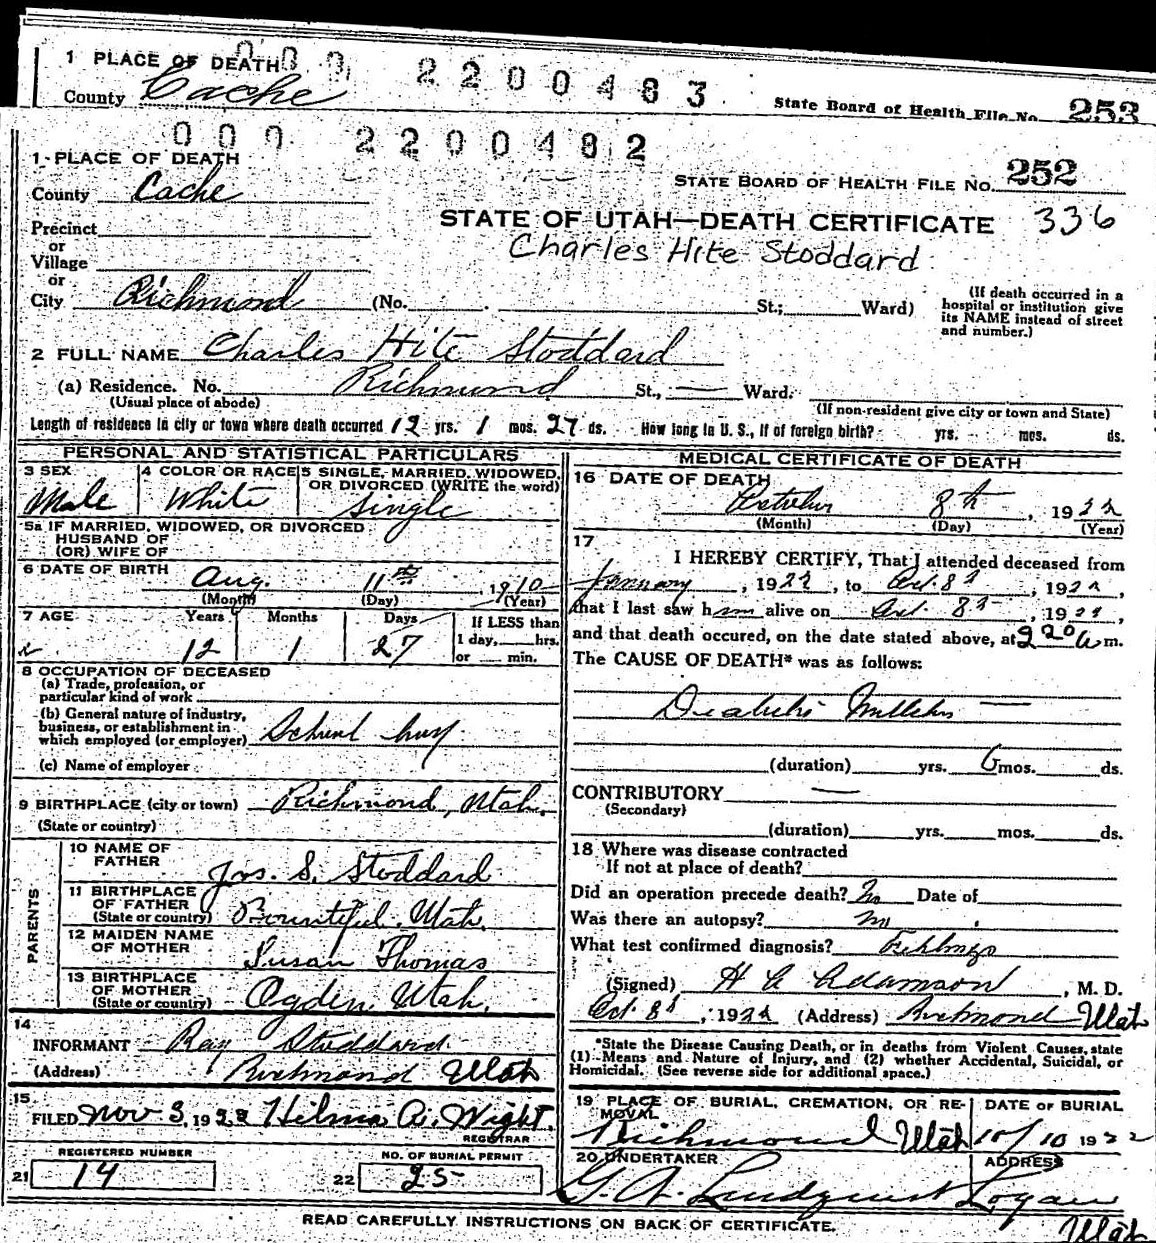 1 PLACE OF DEATH 000 2200483
County Cache State Board of Health File No. 253
000 2200482
1 PLACE OF DEATH
STATE BOARD OF HEALTH FILE NO. 252
County Cache
STATE OF UTAH—DEATH CERTIFICATE 336
Precinct
or
Charles Hite Stoddard
Village
or
City Richmond (No. St.; Ward)
(If death occurred in a
hospital or institution give
its NAME instead of street
and number.)
2 FULL NAME Charles Hite Stoddard
(a) Residence. No. Richmond St., — Ward.
(Usual place of abode) (If non-resident give city or town and State)
Length of residence in city or town where death occurred 12 yrs. 1 mos. 27 ds. How long in U. S., if of foreign birth? yrs. mos. ds.
PERSONAL AND STATISTICAL PARTICULARS
3 SEX
Male
4 COLOR OR RACE
White
5 SINGLE, MARRIED, WIDOWED,
OR DIVORCED (WRITE the word)
Single
5a IF MARRIED, WIDOWED, OR DIVORCED
HUSBAND OF
(OR) WIFE OF
6 DATE OF BIRTH
Aug. 11th, 1910
(Month) (Day) (Year)
7 AGE Years Months Days If LESS than
1 day, hrs.
12 1 27 or min.
8 OCCUPATION OF DECEASED
(a) Trade, profession, or
particular kind of work
(b) General nature of industry,
business, or establishment in
which employed (or employer) School boy
(c) Name of employer
9 BIRTHPLACE (city or town) Richmond, Utah.
(State or country)
PARENTS
10 NAME OF
FATHER Jos. S. Stoddard
11 BIRTHPLACE
OF FATHER
(State or country) Bountiful, Utah.
12 MAIDEN NAME
OF MOTHER Susan Thomas
13 BIRTHPLACE
OF MOTHER
(State or country) Ogden, Utah.
14
INFORMANT Ray Stoddard
(Address) Richmond Utah
15
FILED Nov 3, 1922 Hilma A. Wight.
REGISTRAR
REGISTERED NUMBER
21 14
NO. OF BURIAL PERMIT
22 25
MEDICAL CERTIFICATE OF DEATH
16 DATE OF DEATH
October 8th, 1922
(Month) (Day) (Year)
17
I HEREBY CERTIFY, That I attended deceased from
January, 1922, to Oct. 8th, 1922,
that I last saw him alive on Oct. 8th, 1922,
and that death occured, on the date stated above, at m.
The CAUSE OF DEATH* was as follows:
Diabetes Mellitus —
(duration) yrs. 6 mos. ds.
CONTRIBUTORY —
(Secondary)
(duration) yrs. mos. ds.
18 Where was disease contracted
If not at place of death?
Did an operation precede death? No Date of
Was there an autopsy? no
What test confirmed diagnosis? Fehlings
(Signed) H A Adamson, M. D.
Oct. 8th, 1922 (Address) Richmond Utah
*State the Disease Causing Death, or in deaths from Violent Causes, state
(1) Means and Nature of Injury, and (2) whether Accidental, Suicidal, or
Homicidal. (See reverse side for additional space.)
19 PLACE OF BURIAL, CREMATION, OR RE-
MOVAL
Richmond Utah
DATE OF BURIAL
10/10 1922
20 UNDERTAKER
G. A. Lundquist
ADDRESS
Logan
Utah
READ CAREFULLY INSTRUCTIONS ON BACK OF CERTIFICATE.